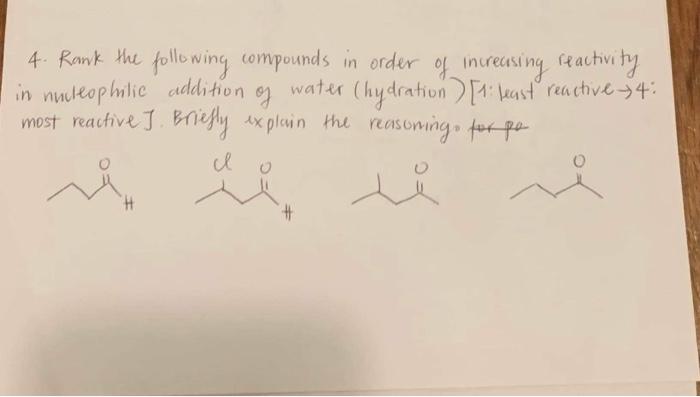 4. Rank the following compounds in order of increasing reactivity
in nucleophilic addition of water (hydration) [1: least reactive → 4:
most reactive]. Briefly explain the reasoning. for pe
O Cl O O O
H H